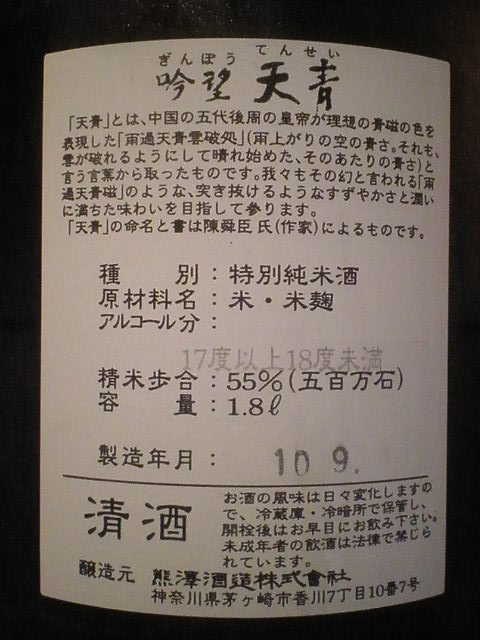 ぎんぽう てんせい
吟望 天青
「天青」とは、中国の五代後周の皇帝が理想の青磁の色を
表現した「雨過天青雲破処」(雨上がりの空の青さ。それも、
雲が破れるようにして晴れ始めた、そのあたりの青さ)と
言う言葉から取ったものです。我々もその幻と言われる「雨
過天青磁」のような、突き抜けるようなすずやかさと潤い
に満ちた味わいを目指して参ります。
「天青」の命名と書は陳舜臣 氏(作家)によるものです。
種別:特別純米酒
原材料名:米・米麹
アルコール分:
17度以上18度未満
精米歩合:55%(五百万石)
容量:1.8ℓ
製造年月: 10 9.
清酒
お酒の風味は日々変化しますの
で、冷蔵庫・冷暗所で保管し、
開栓後はお早目にお飲み下さい。
未成年者の飲酒は法律で禁じら
れています。
醸造元 熊澤酒造株式會社
神奈川県茅ヶ崎市香川7丁目10番7号